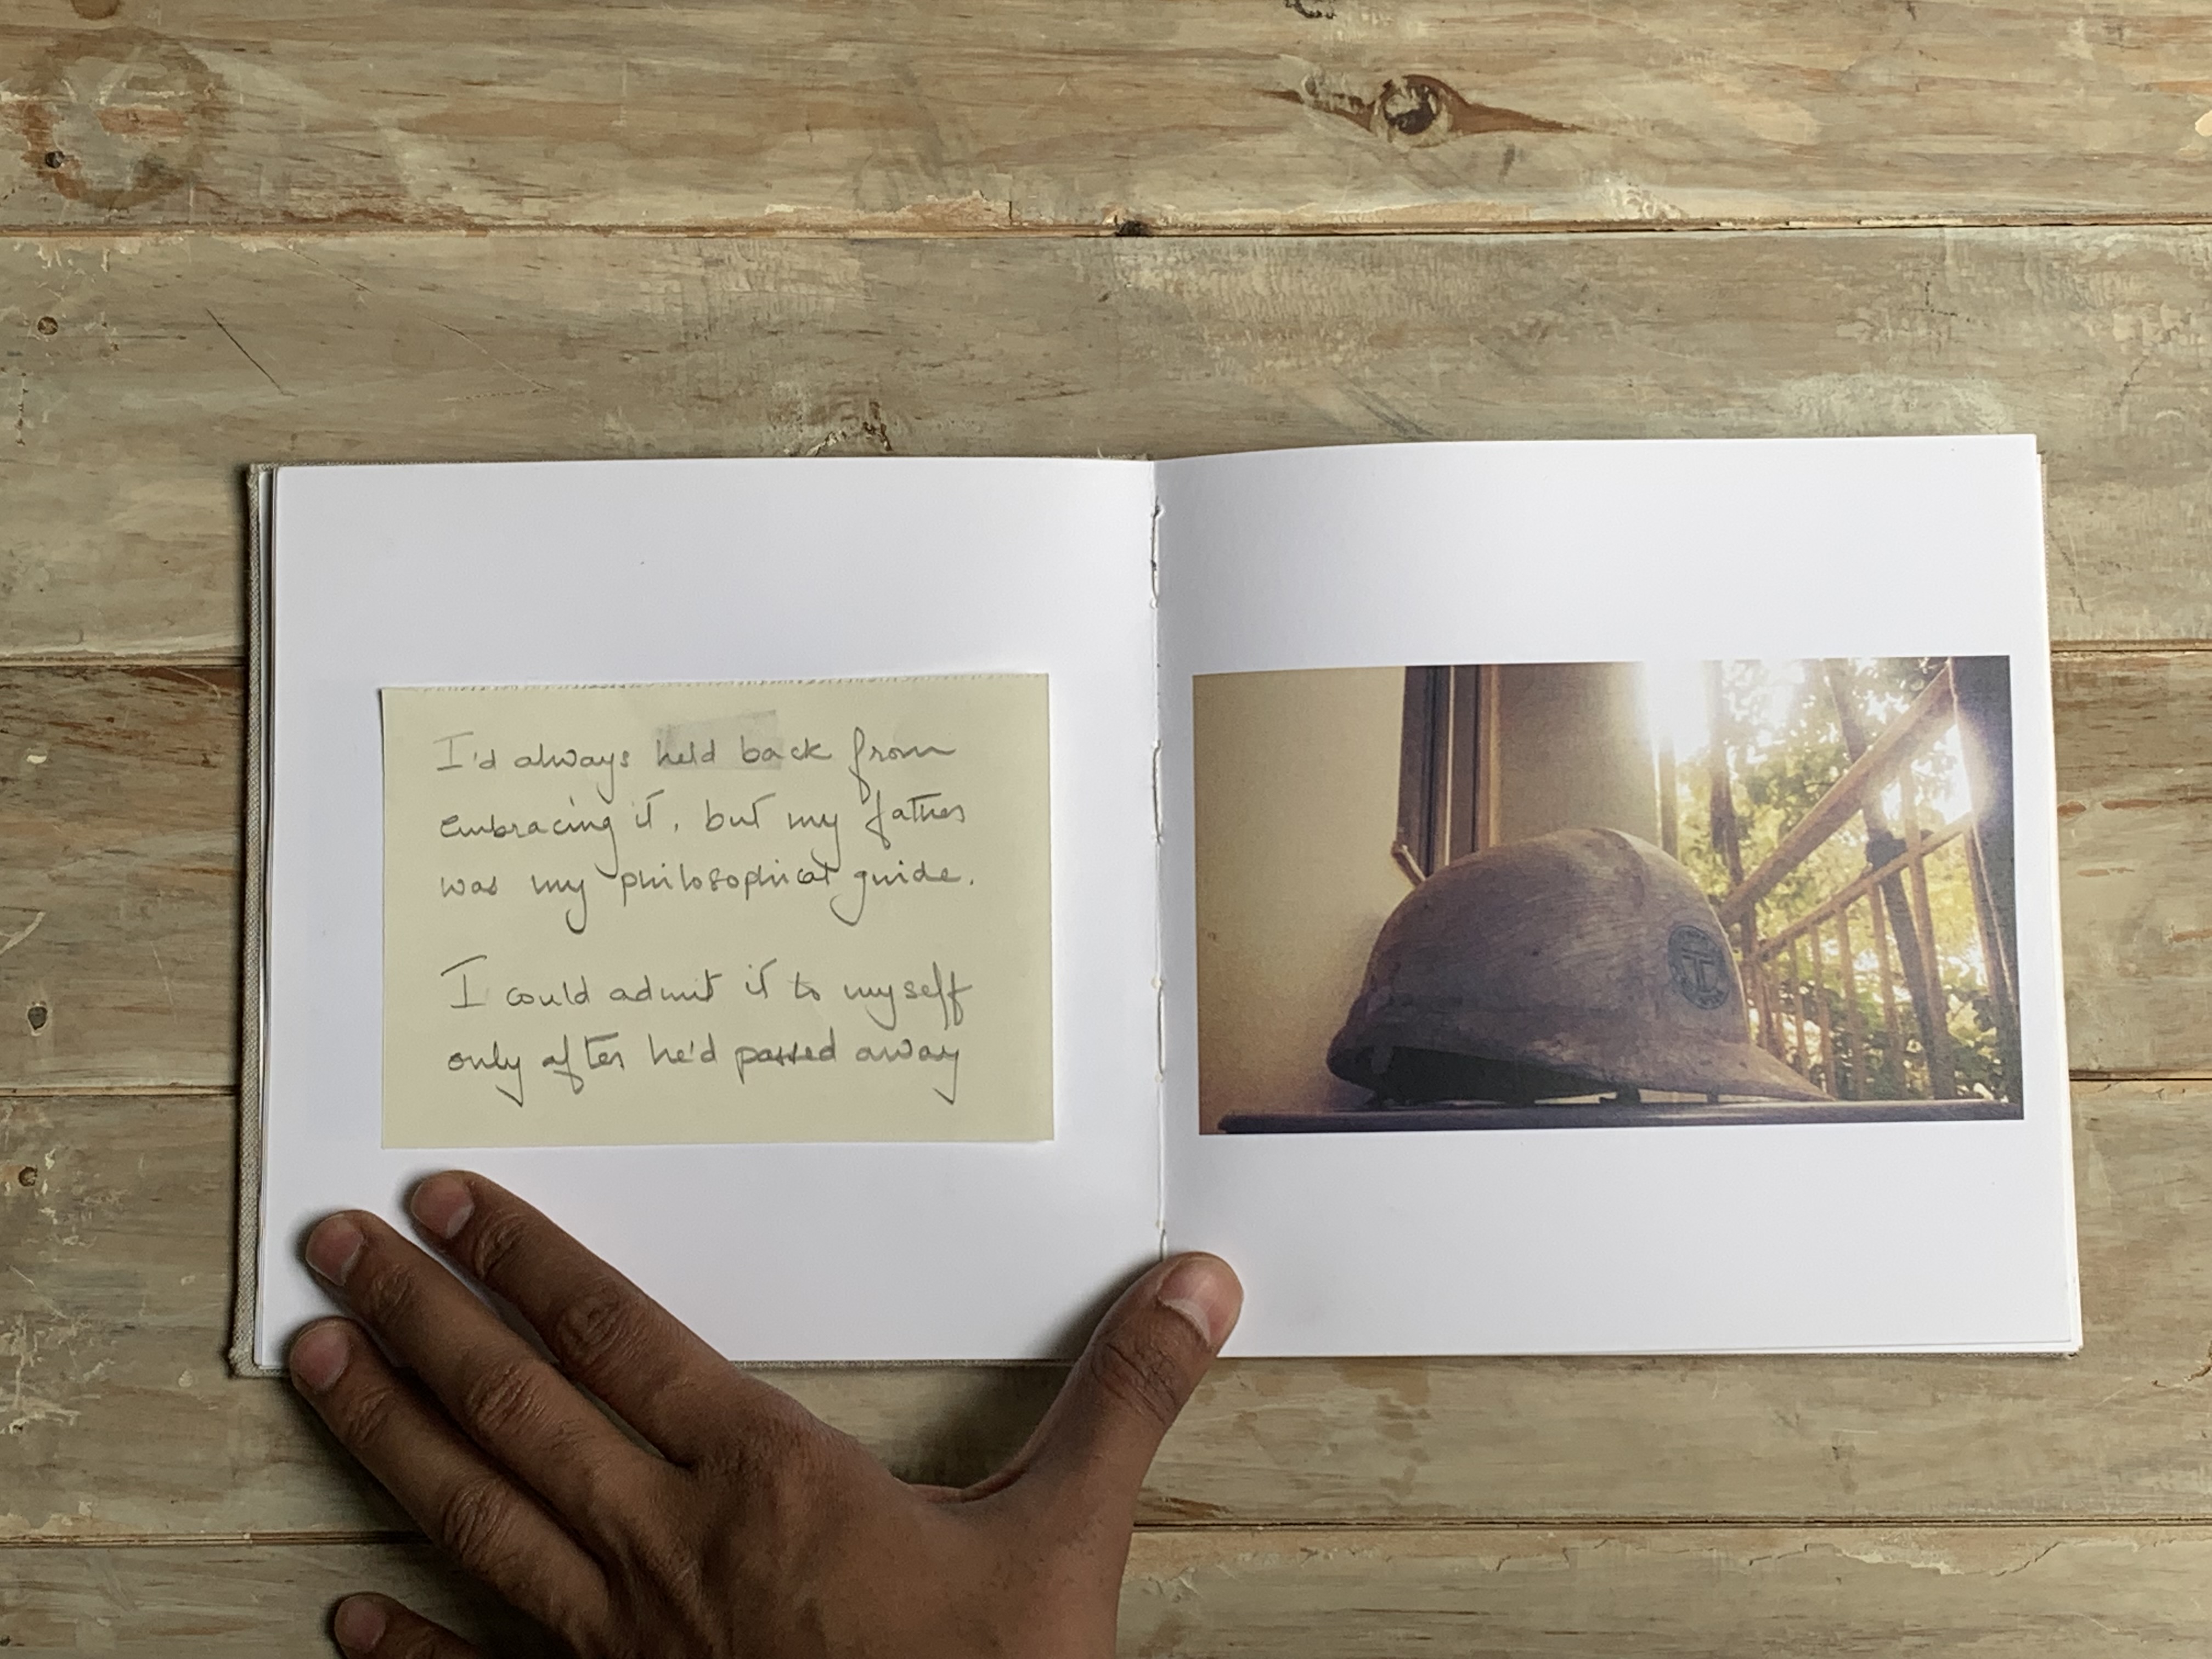 I'd always held back from
embracing it, but my father
was my philosophical guide.
I could admit it to myself
only after he'd passed away